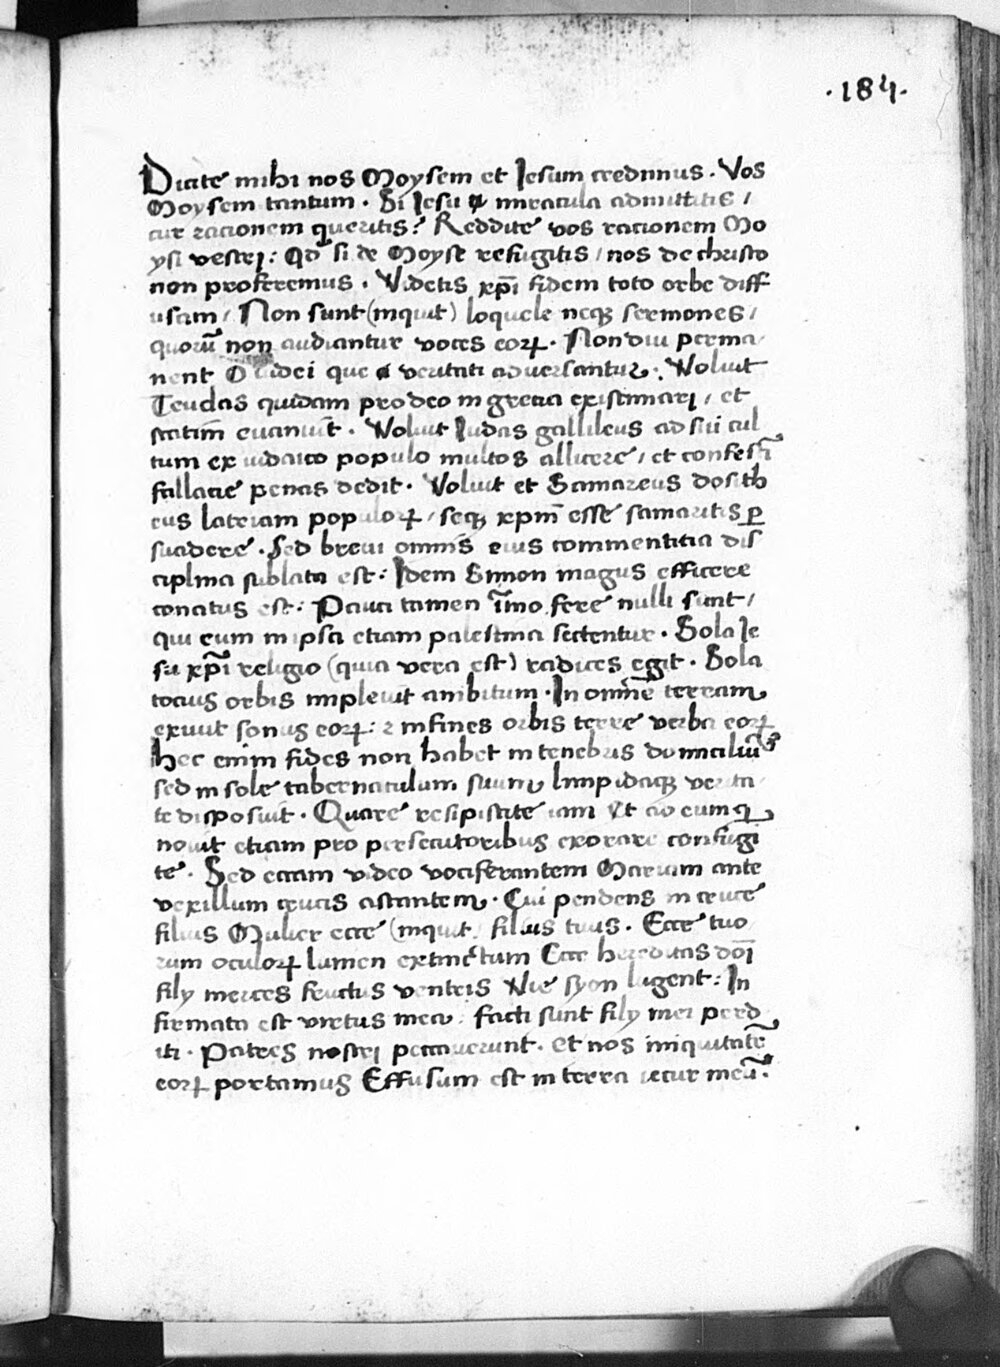 ·184·
Dicite mihi nos Moysem et Iesum credimus · Vos
Moysem tantum · Si Iesu miracula admittitis /
cur racionem queritis? Reddite vos racionem Mo
ysi vestri: Qd si de Moyse refugitis / nos de christo
non proferemus · Videtis xp̄i fidem toto orbe diff
usam / Non sunt (inquit) loquele neqꝫ sermones /
quorū non audiantur voces eoꝝ · Non diu perma
nent O iudei que veritati adversantur · Voluit
Teudas quidam pro deo in grecia existimari / et
statim evanuit · Voluit Iudas gallileus ad sui cul
tum ex iudaico populo multos allicere / et confestī
fallacie penas dedit · Voluit et Samareus dosith
eus populoꝝ / seqꝫ xpm̄ esse samaritis ꝑ
suadere · Sed brevi omnis eius commentitia dis
ciplina sublata est: Idem Simon magus efficere
conatus est: Pauci tamen īmo fere nulli sunt /
qui eum in ipsa etiam palestina sectentur · Sola Ie
su xp̄i religio (quia vera est) radices egit · Sola
tocius orbis implevit ambitum · In omnē terram
exivit sonus eoꝝ: ⁊ in fines orbis terre verba eoꝝ
Hec enim fides non habet in tenebris domiciliū
sed in sole tabernaculum suum limpidaqꝫ verita
te disposuit · Quare resipiscite iam Et ad eum q̄
novit etiam pro persecutoribus exorare confugi
te · Sed eccam video vociferantem Mariam ante
vexillum crucis astantem · Cui pendens in cruce
filius Mulier ecce (inquit) filius tuus · Ecce tuo
rum oculoꝝ lumen extinctum Ecce hereditas dōi
fily merces fructus ventris Vie syon lugent: In
firmata est virtus mea: facti sunt fily mei perd
iti · Patres nostri peccaverunt · et nos iniquitatē
eoꝝ portamus Effusum est in terra iecur meū ·